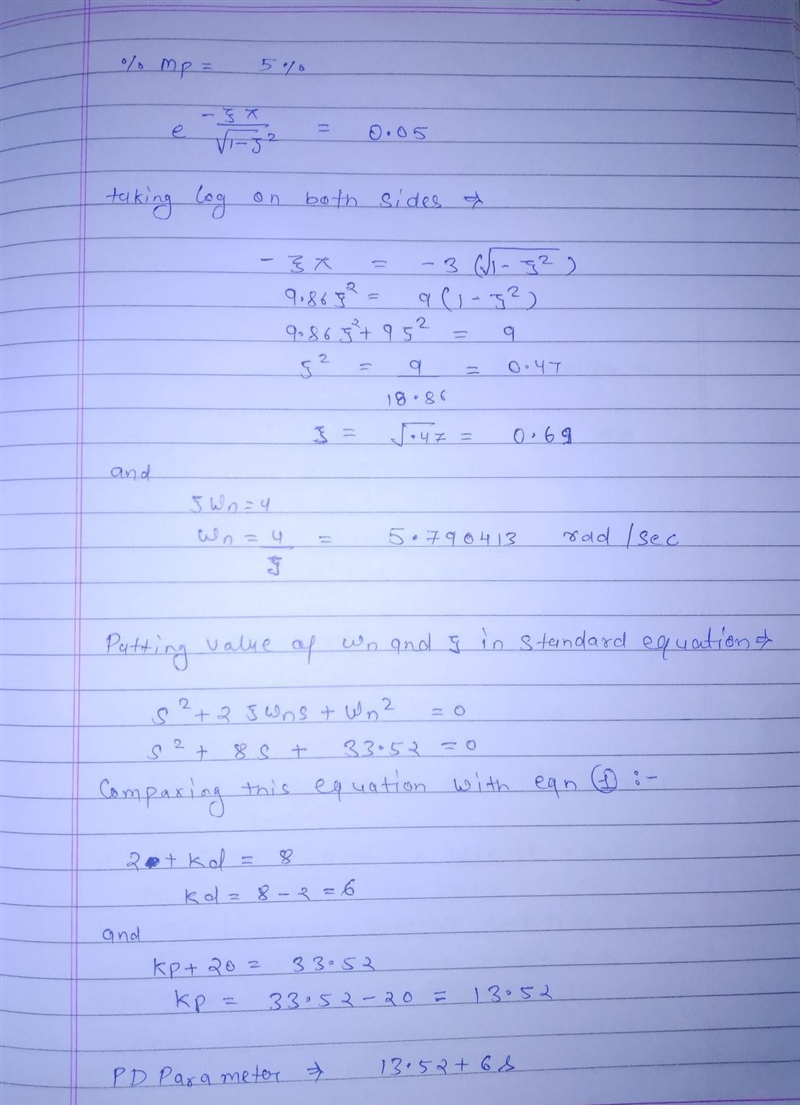 % Mp = 5%
e^(-ξπ/√1-ξ²) = 0.05
taking log on both sides ⇒
-ξπ = -3(√1-ξ²)
9.86ξ² = 9(1-ξ²)
9.86ξ² + 9ξ² = 9
ξ² = 9/18.86 = 0.47
ξ = √.47 = 0.69
and
ξWn = 4
Wn = 4/ξ = 5.790413 rad/sec
Putting value of wn and ξ in standard equation ⇒
s² + 2ξWns + Wn² = 0
s² + 8s + 33.52 = 0
Comparing this equation with eqn ① :-
2 + kd = 8
kd = 8-2 = 6
and
kp + 20 = 33.52
kp = 33.52 - 20 = 13.52
PD Parameter ⇒ 13.52 + 6s